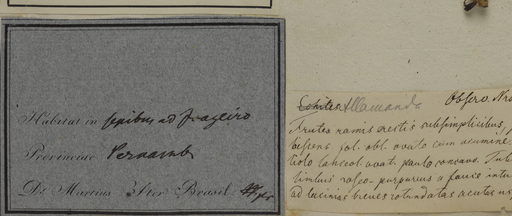 Habitat in sepibus ad Joazeiro
Provinciae Pernamb
Dr. Martius Iter Brasil.
Echites Allamanda Observ. Nro
Frutex ramis erectis subsimplicibus,
fol. obl. ovato cum acumine
lanceol. ovat. paulo concavo. Tub
limbus roseo-purpureus a fauce intu
ad lacinias breves rotundatas acutas